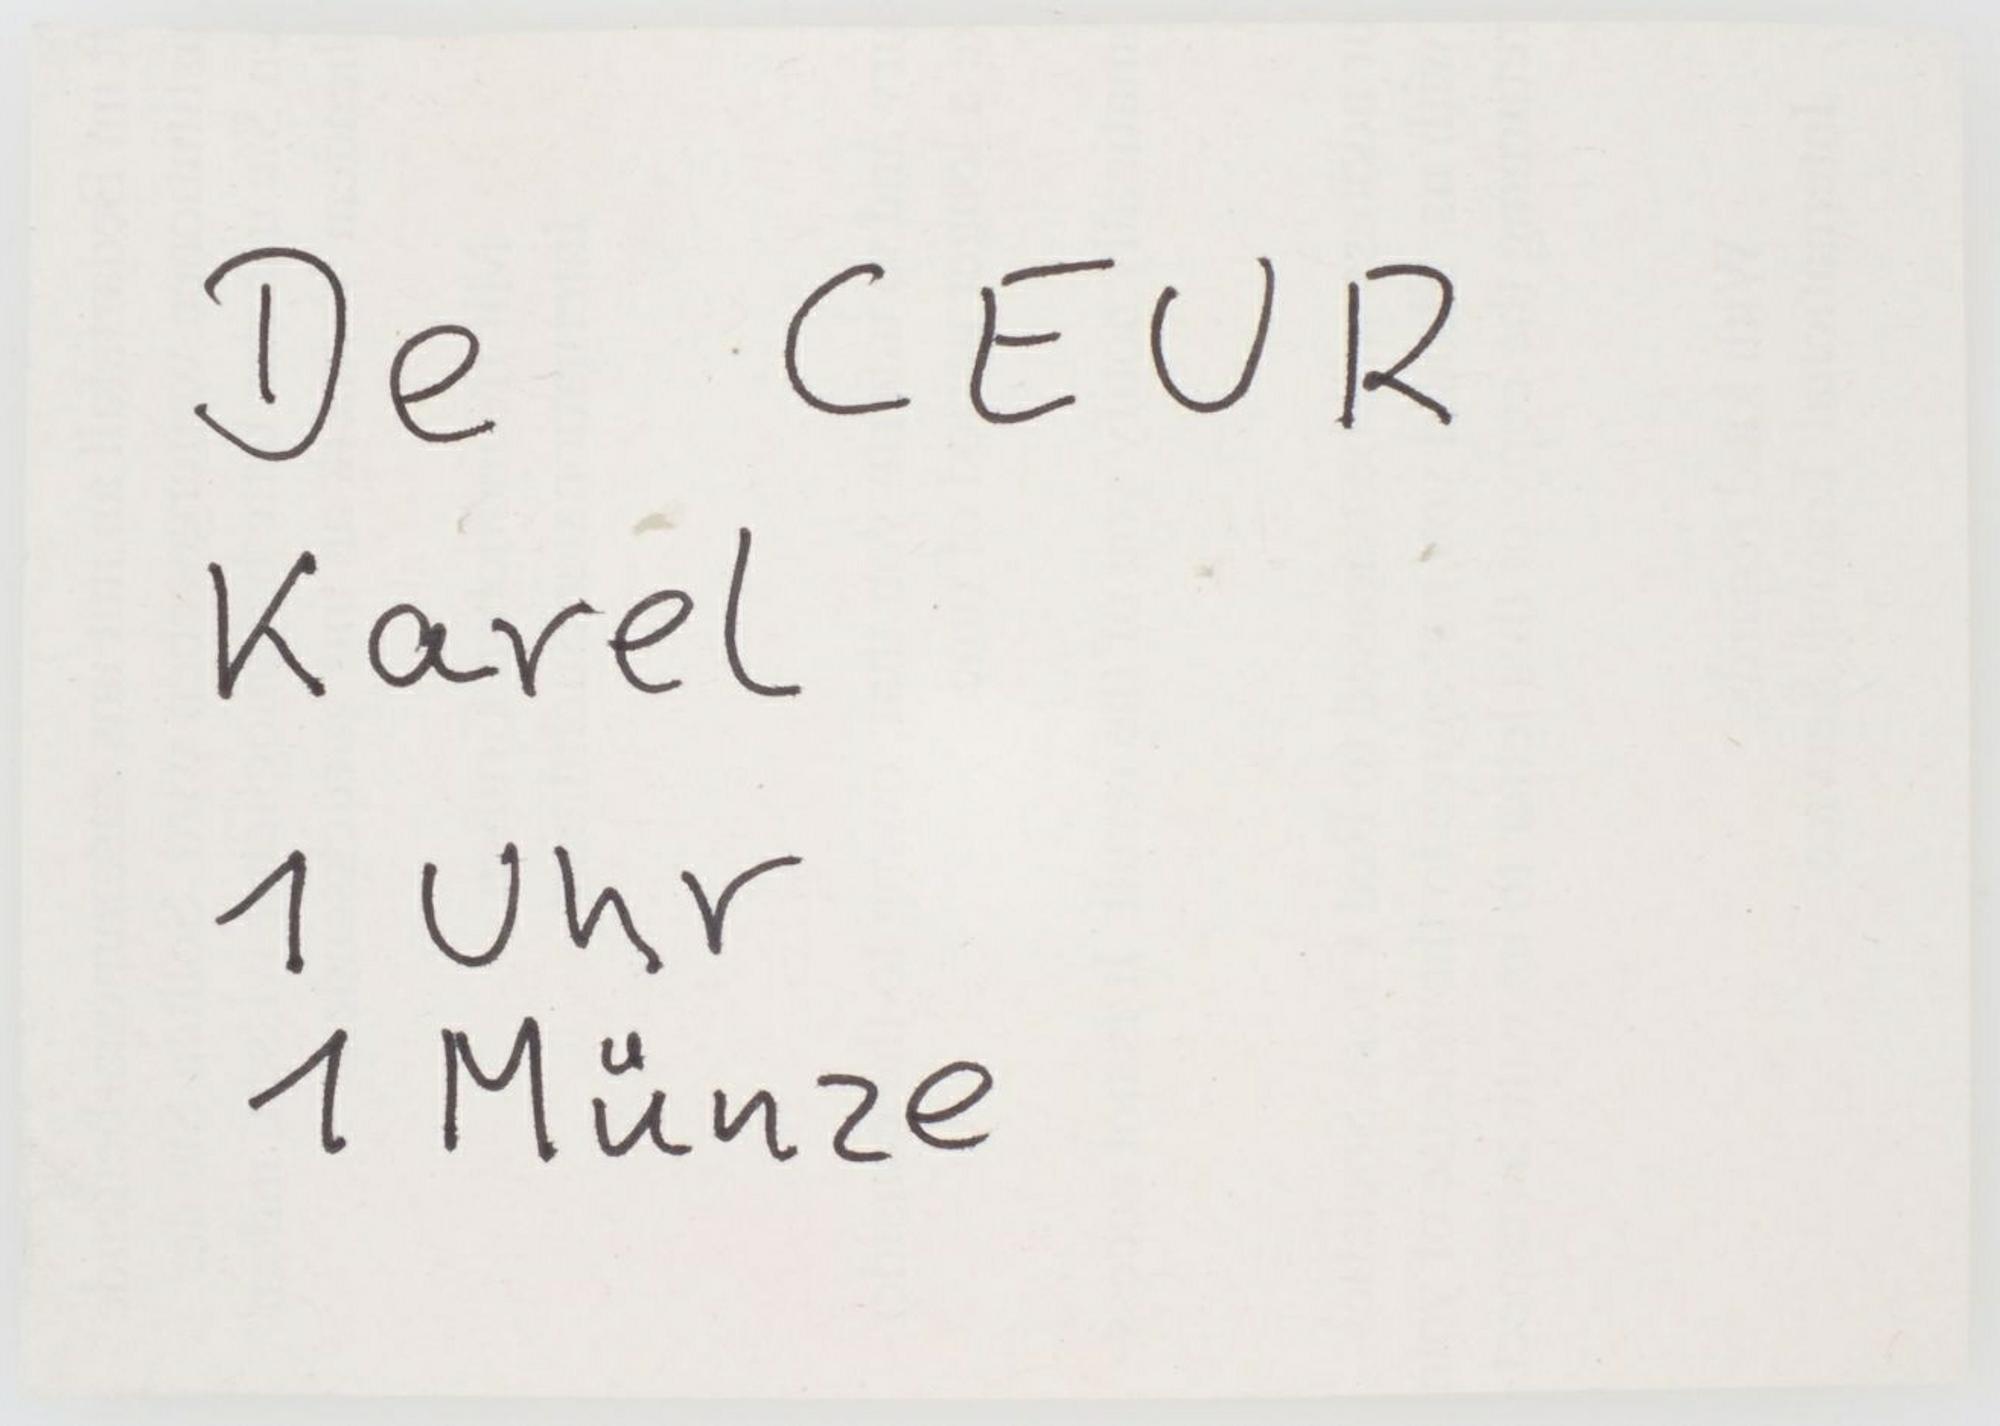 De CEUR
Karel
1 Uhr
1 Münze